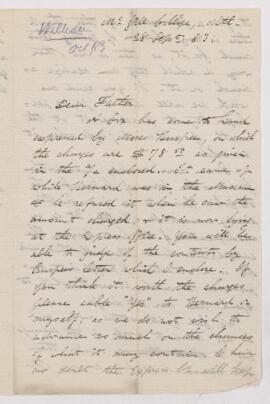 William
Oct 83
McGill College, Mtl
28 Sept 83
Dear Father
A box has come to hand
expressed by Moses Burpee, on which
the charges are $78 as given
in the a/c enclosed. It came
while Bernard was in the Museum
& he refused it when he saw the
amount charged, & it is now lying
at the Express Office. You will be
able to judge of the contents by
Burpee's letter which I enclose. If
you think it worth the charges
please cable "Yes" to Bernard or
myself, as we do not wish to
advance so much on the chances
of what it may contain. I have
no doubt the Express Co. will keep